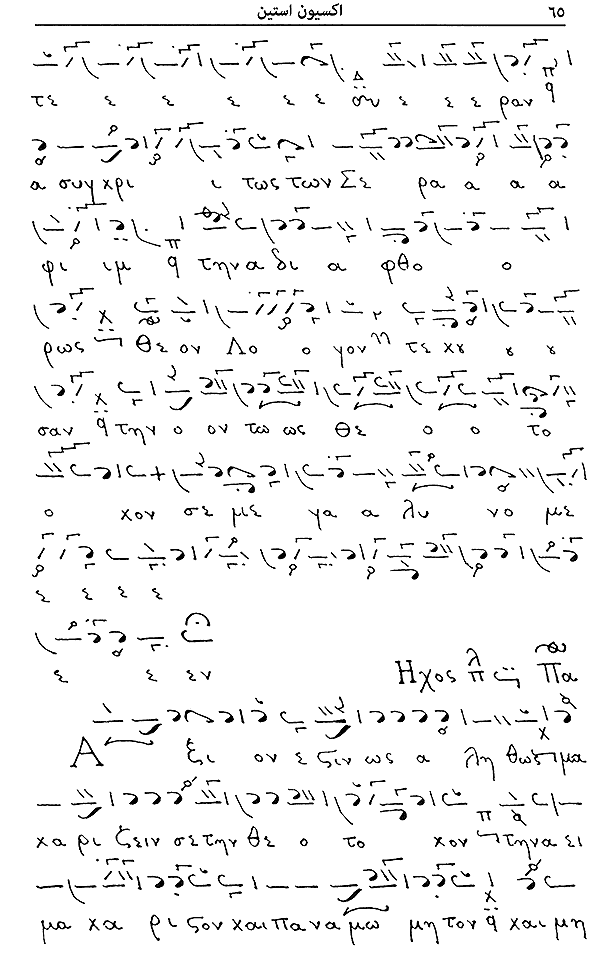 اكسيون استين ٦٥
τε ε ε ε ε ε ε ε ε ραν
α συγκρι ι τως των Σε ρα α α α
φι ιμ την α δι α φθο ο
ρως Θε ον Λο ο γον τε κȣ ȣ ȣ
σαν την ο ον τω ως Θε ο ο το
ο κον σε με γα α λυ νο με
ε ε ε ε
ε ε εν
Ηχος λ π Πα
Α ξι ον ε ϛιν ως α λη θως μα
κα ρι ζειν σε την θε ο το κον την α ει
μα κα ρι ϛον και πα να μω μη τον και μη